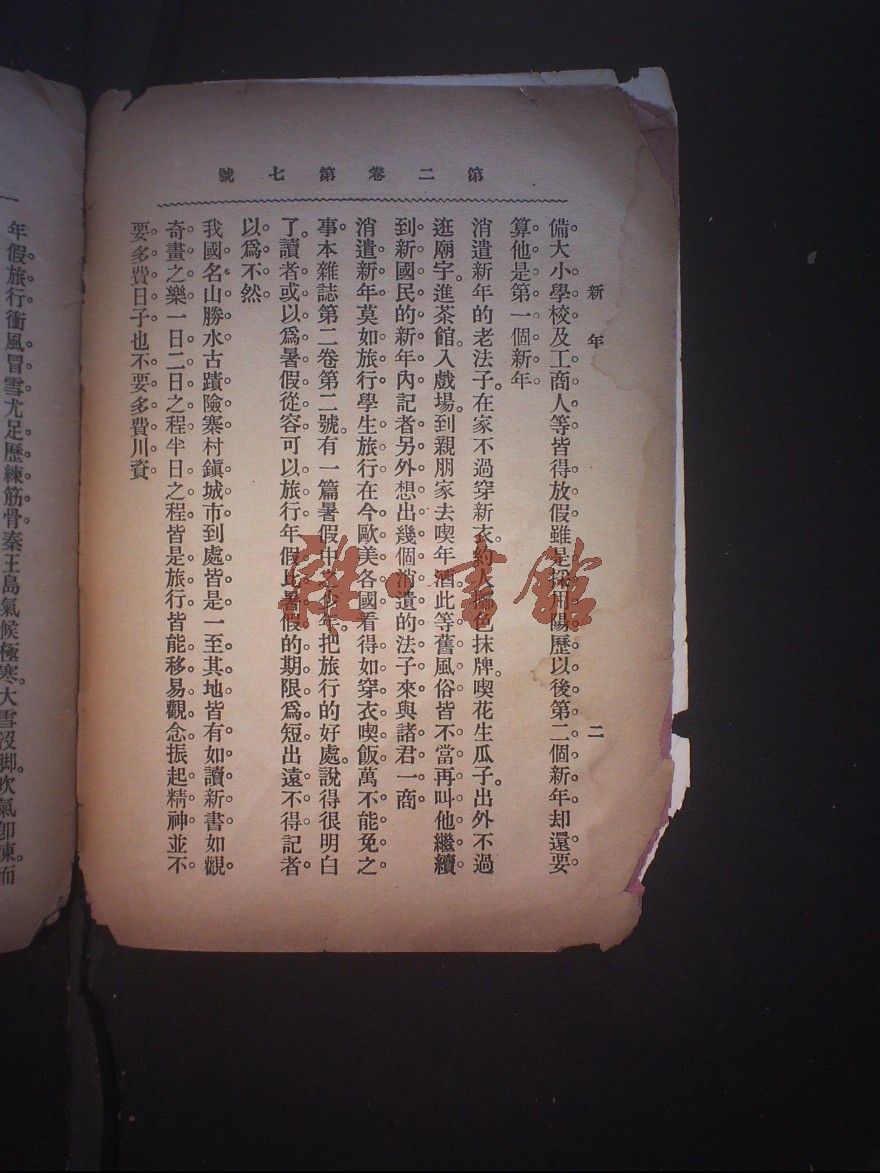 第二卷第七號
新年
二
備大小學校及工商人等皆得放假雖是採用陽歷以後第二個新年却還要
算他是第一個新年
消遣新年的老法子。在家不過穿新衣。約人擲色抹牌。喫花生瓜子。出外不過
逛廟宇。進茶館。入戲場。到親朋家去喫年酒。此等舊風俗皆不當再叫他繼續
到新國民的新年內記者另外想出幾個消遣的法子來與諸君一商
消遣新年莫如旅行學生旅行在今歐美各國看得如穿衣喫飯萬不能免之
事。本雜誌第二卷第二號。有一篇暑假中之少年。把旅行的好處。說得很明白
了。讀者或以爲暑假從容可以旅行年假比暑假的期限爲短出遠不得記者
以爲不然
我國名山勝水古蹟險寨村鎭城市到處皆是一至其地皆有如讀新書如觀
奇畫之樂一日二日之程半日之程皆是旅行皆能移易觀念振起精神並不
要多費日子也不要多費川資
年假旅行衝風冒雪尤足歷練筋骨秦王島氣候極寒。大雪沒脚。吹氣卽凍。而
雜·書館